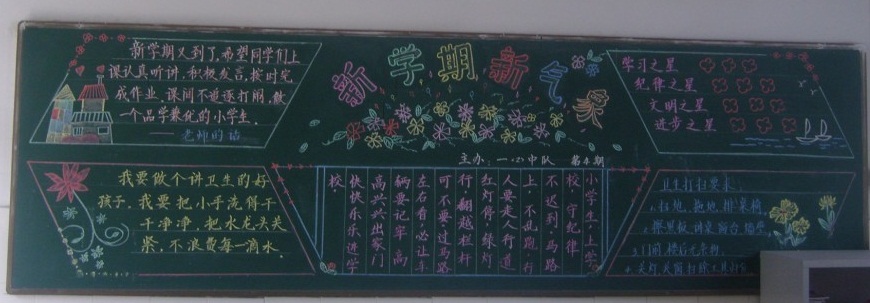 新学期又到了,希望同学们上
课认真听讲,积极发言,按时完
成作业 课间不追逐打闹,做
一个品学兼优的小学生.
——老师的话
新学期新气象
主办:一·(2)中队 第 期
学习之星
纪律之星
文明之星
进步之星
我要做个讲卫生的好
孩子.我要把小手洗得干
干净净,把水龙头关
紧,不浪费每一滴水
小学生,上学
校,守纪律
不迟到,马路
上,不乱跑,行
人要走人行道
红灯停,绿灯
行,翻越栏杆
可不要,过马路
左右看,必让车
辆要记牢 高
高兴兴出家门
快快乐乐进学
校
卫生打扫要求:
1.扫地,拖地 排桌椅
2.擦黑板 讲桌 窗台 墙壁
3.门前 楼后
4.关灯 关窗 打扫工具